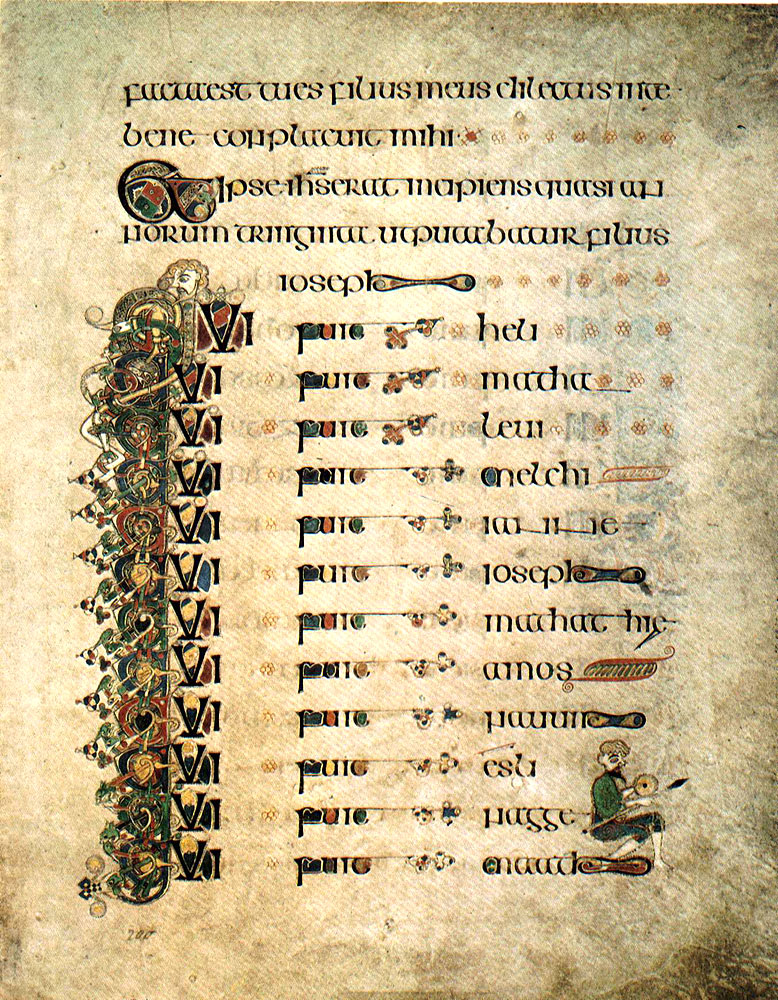 factaest tues filius meus dilectus inte
bene conplacuit mihi
Et ipse ihs erat incipiens quasi an
norum triginta ut putabatur filius
ioseph
QUI fuit heli
QUI fuit matha
QUI fuit leui
QUI fuit melchi
QUI fuit ianne
QUI fuit ioseph
QUI fuit mathathie
QUI fuit amos
QUI fuit nauum
QUI fuit esli
QUI fuit nagge
QUI fuit maath
200